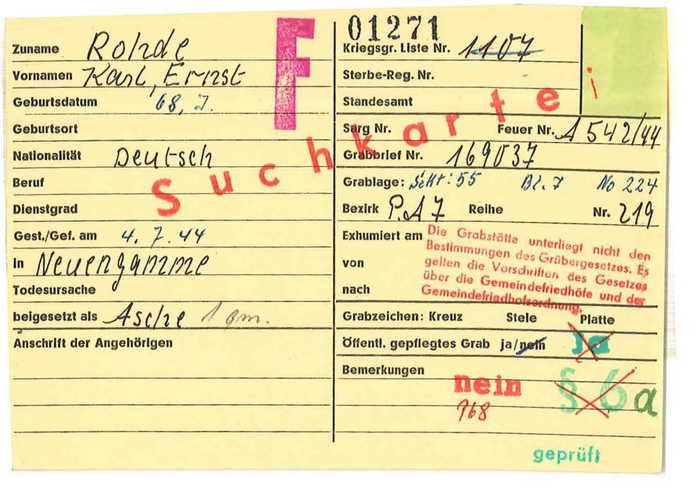 F
01271
Zuname Rohde
Kriegsgr. Liste Nr. 1107
Vornamen Karl, Ernst
Sterbe-Reg. Nr.
Geburtsdatum 68, J.
Standesamt
Geburtsort
Sarg Nr. Feuer Nr. A 542/44
Nationalität Deutsch
Grabbrief Nr. 169037
Suchkartei
Beruf
Grablage: Bl. 7 No 224
Dienstgrad
Bezirk P.A 7 Reihe Nr. 219
Gest./Gef. am 4. 7. 44
Exhumiert am
in Neuengamme
von
Todesursache
nach
Die Grabstätte unterliegt nicht den
Bestimmungen des Gräbergesetzes. Es
gelten die Vorschriften des Gesetzes
über die Gemeindefriedhöfe und der
Gemeindefriedhofsordnung.
beigesetzt als Asche 1 qm.
Grabzeichen: Kreuz Stele Platte
Anschrift der Angehörigen
Öffentl. gepflegtes Grab ja/nein ja
Bemerkungen
nein § 6 a
968
geprüft